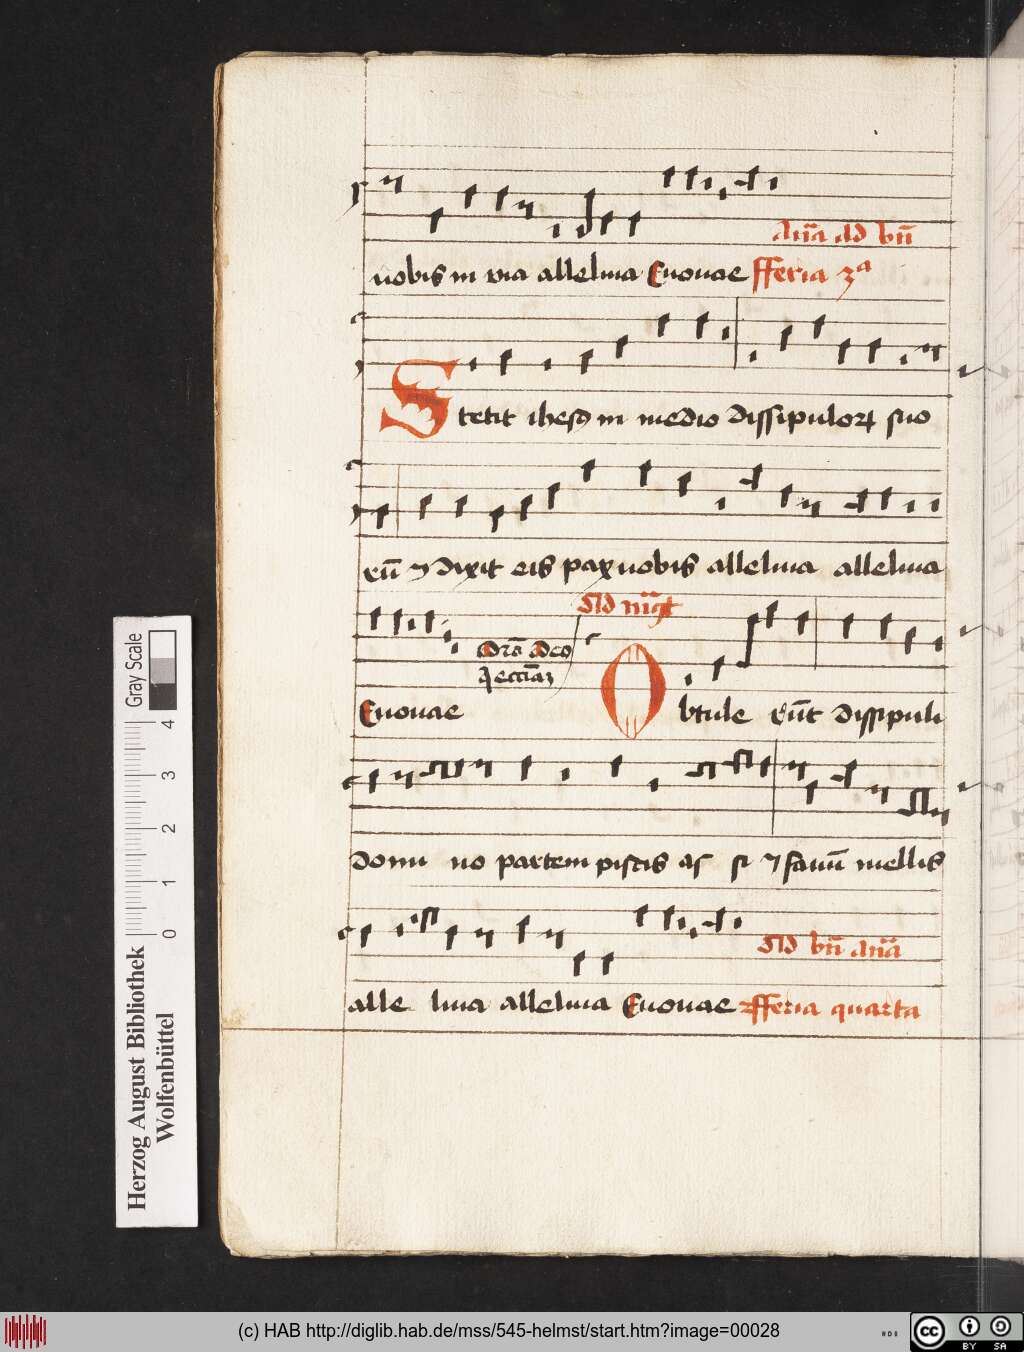 Aña ad bñ
uobis in via alleluia Euouae fferia 3ª
Stetit ihesꝫ in medio dissipuloꝝ suo
eū ⁊ dixit eis pax uobis alleluia alleluia
Ad mḡt
Euouae
Obtule rūt dissipuli
domi no partem piscis as si ⁊ fauū mellis
Ad bñ aña
alle luia alleluia Euouae fferia quarta
Gray Scale
0 1 2 3 4
Herzog August Bibliothek
Wolfenbüttel
(c) HAB http://diglib.hab.de/mss/545-helmst/start.htm?image=00028
cc BY SA